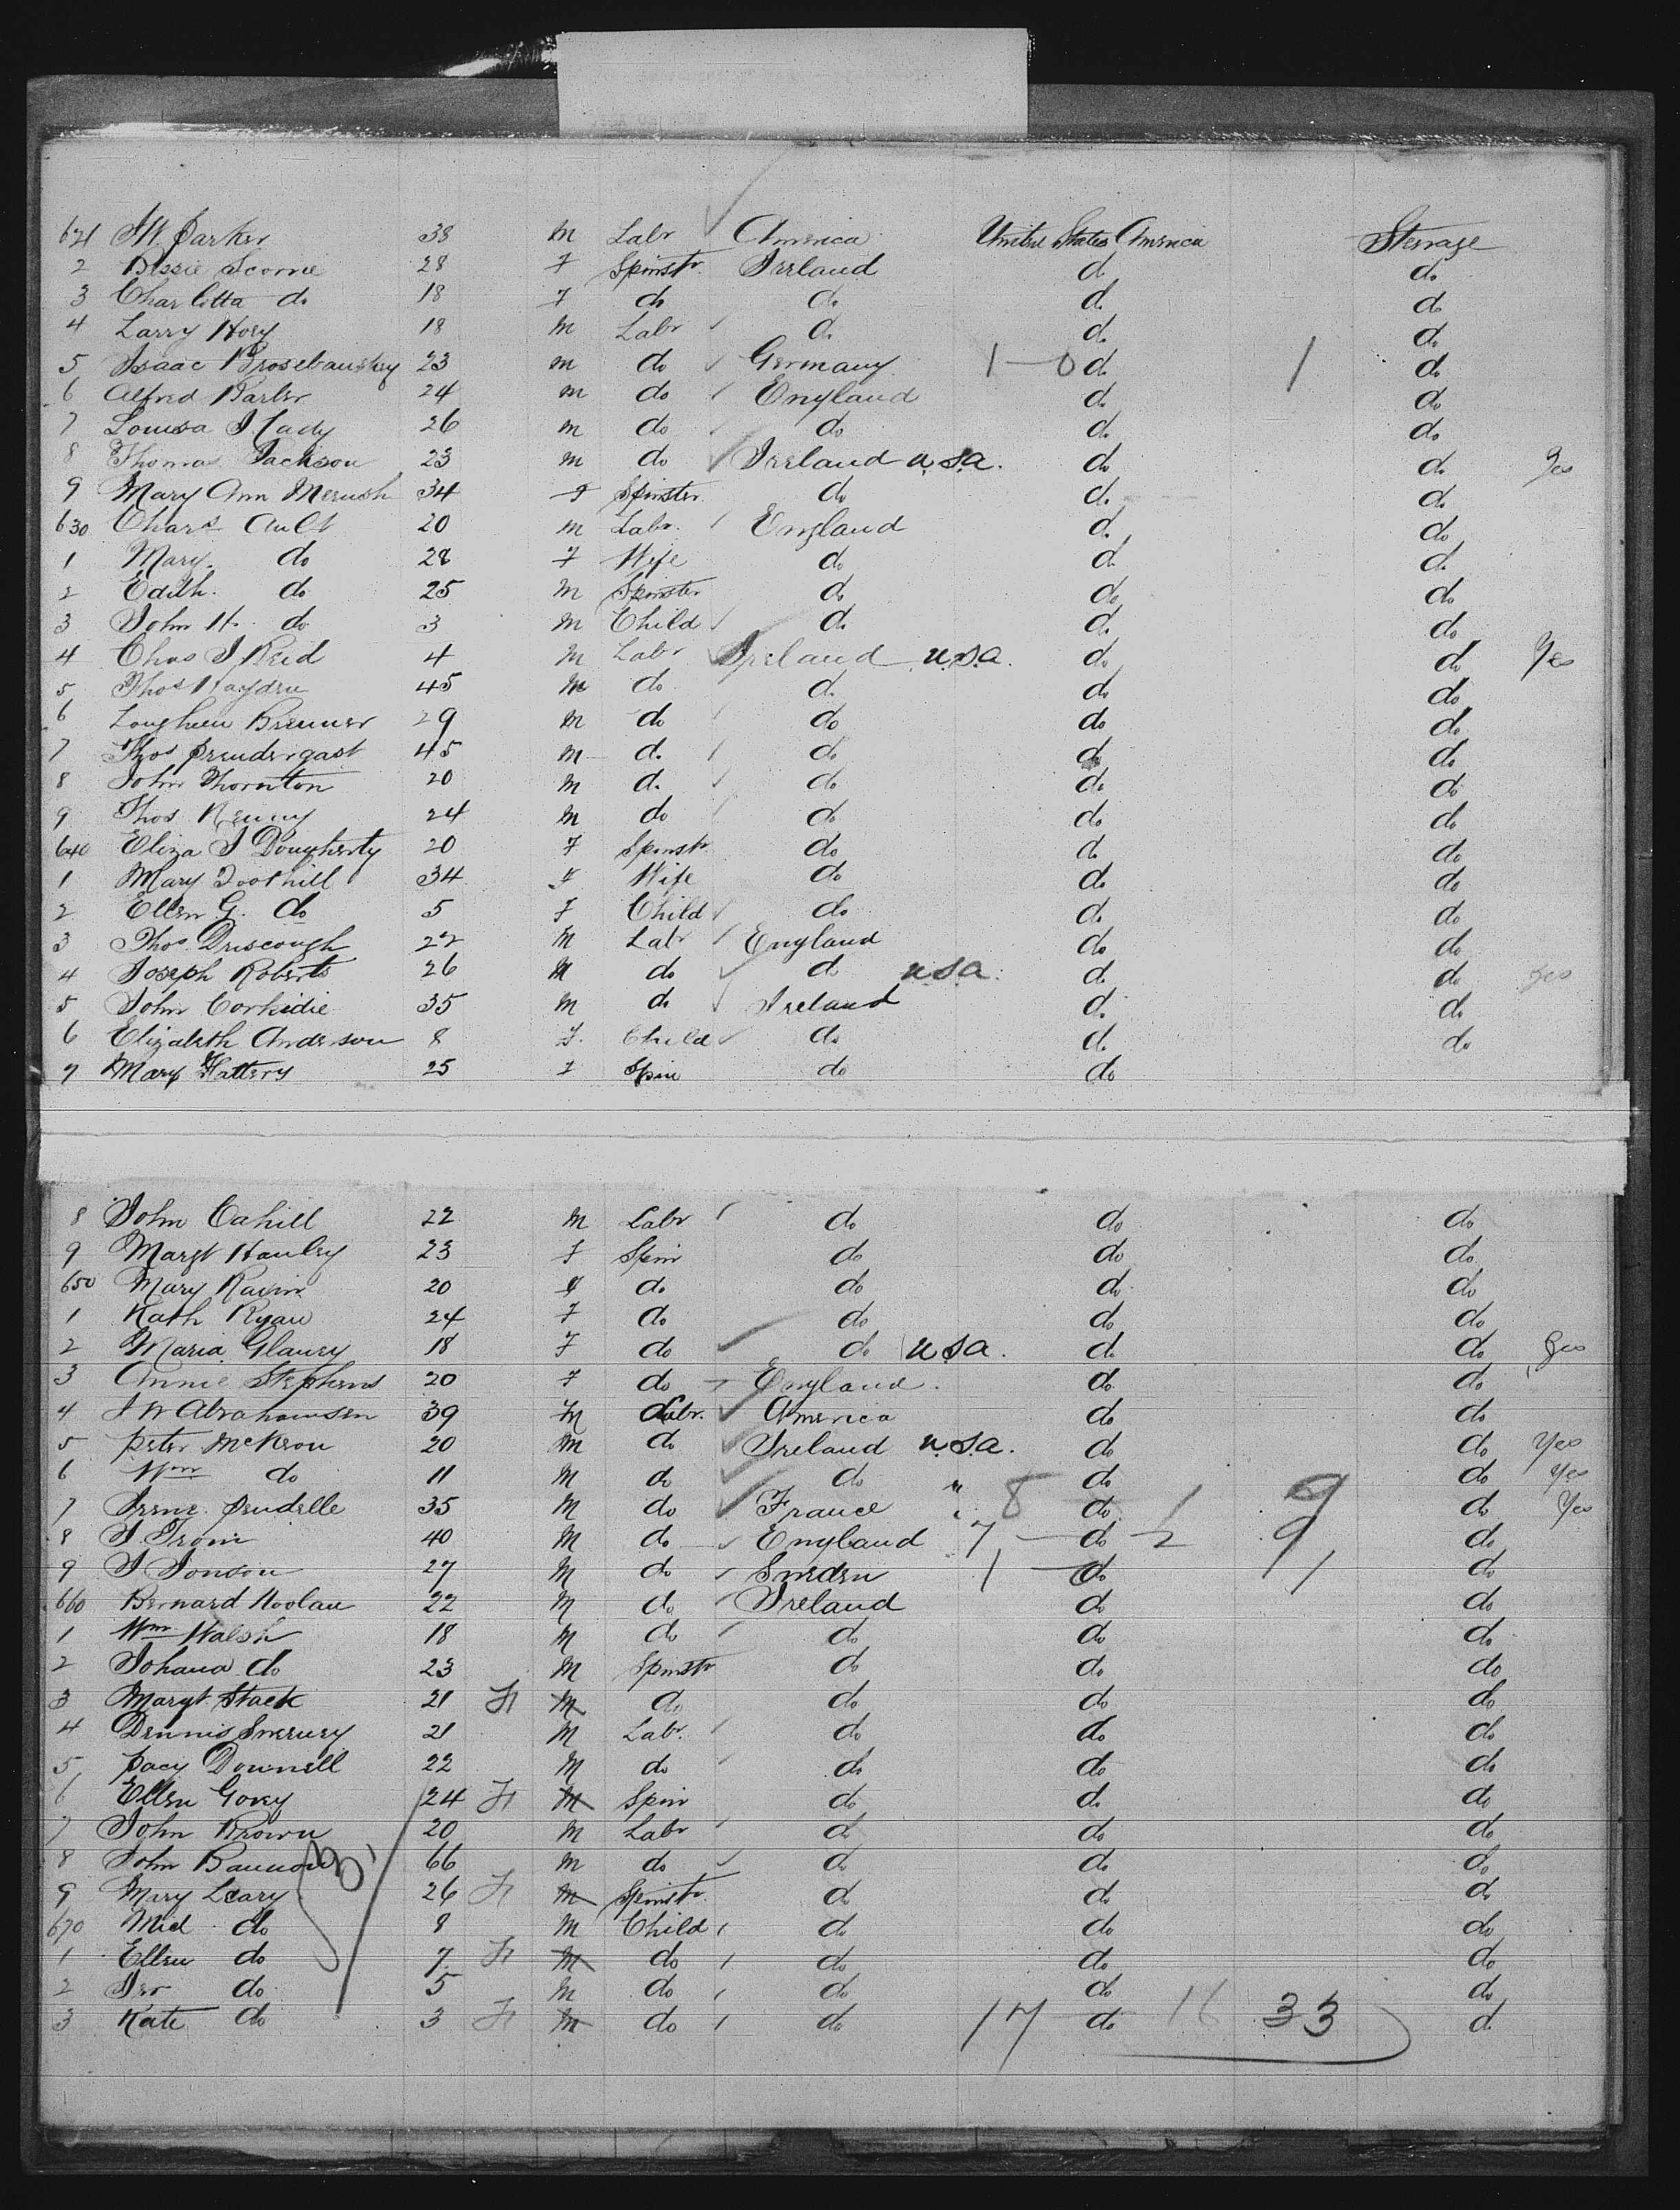 621 J W Parker 38 M Labr America United States America Steerage
2 Bessie Scorrie 28 F Spinstr Ireland do do
3 Charlotta do 18 F do do do do
4 Larry Hoey 18 M Labr do do do
5 Isaac 23 M do Germany 1-0 do 1 do
6 Alfred Barber 24 M do England do do
7 Louisa J Cady 26 M do do do do
8 Thomas Jackson 23 M do Ireland U.S.A. do do Yes
9 Mary Ann 34 F Spinster do do do
630 Chars Ault 20 M Labr England do do
1 Mary do 28 F Wife do do do
2 Edith do 25 M Spinster do do do
3 John H. do 3 M Child do do do
4 Chas J Reid 4 M Labr Ireland U.S.A. do do Yes
5 Thos Hayden 45 M do do do do
6 Brenner 29 M do do do do
7 Thos Prendergast 45 M do do do do
8 John Thornton 20 M do do do do
9 Thos Kenny 24 M do do do do
640 Eliza J Dougherty 20 F Spinstr do do do
1 Mary Toothill 34 F Wife do do do
2 Ellen G. do 5 F Child do do do
3 Thos Driscough 22 M Labr England do do
4 Joseph Roberts 26 M do do U.S.A. do do Yes
5 John Corkidie 35 M do Ireland do do
6 Elizabeth Anderson 8 F. Child do do do
7 Mary Flattery 25 F Spin do do
8 John Cahill 22 M Labr do do do
9 Margt Hanley 23 F Spin do do do
650 Mary 20 F do do do do
1 Kath Ryan 24 F do do do do
2 Maria Glancy 18 F do do U.S.A. do do Yes
3 Annie Stephens 20 F do England do do
4 J W Abrahamsen 39 M Labr. America do do
5 Peter McKeon 20 M do Ireland U.S.A. do do Yes
6 Wm do 11 M do do " do do Yes
7 35 M do France " 8 do 1 9 do Yes
8 J 40 M do England 7 - do 2 9 do
9 J Jonson 27 M do Sweden 1 - do 1 do
660 Bernard Noolan 22 M do Ireland do do
1 Wm Walsh 18 M do do do do
2 Johana do 23 M Spinstr do do do
3 Margt Stack 21 F M do do do do
4 Dennis 21 M Labr. do do do
5 Downell 22 M do do do do
6 Ellen Govey 24 F M Spin do do do
7 John Brown 20 M Labr do do do
8 John Bannon 66 M do do do do
9 Mary Leary 26 F M Spinstr do do do
670 Mid do 8 M Child do do do
1 Ellen do 7 F M do do do do
2 Jer do 5 M do do do do
3 Kate do 3 F M do do 17 - do 16 33 do